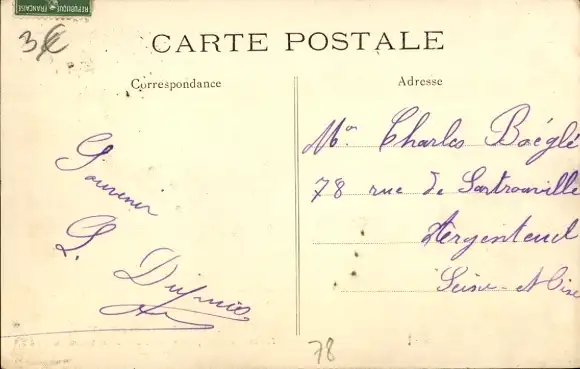 RÉPUBLIQUE FRANÇAISE
3€
CARTE POSTALE
Correspondance
Adresse
Souvenir
Mr Charles Boéglé
78 rue de Sartrouville
Argenteuil
Seine-et-Oise
78